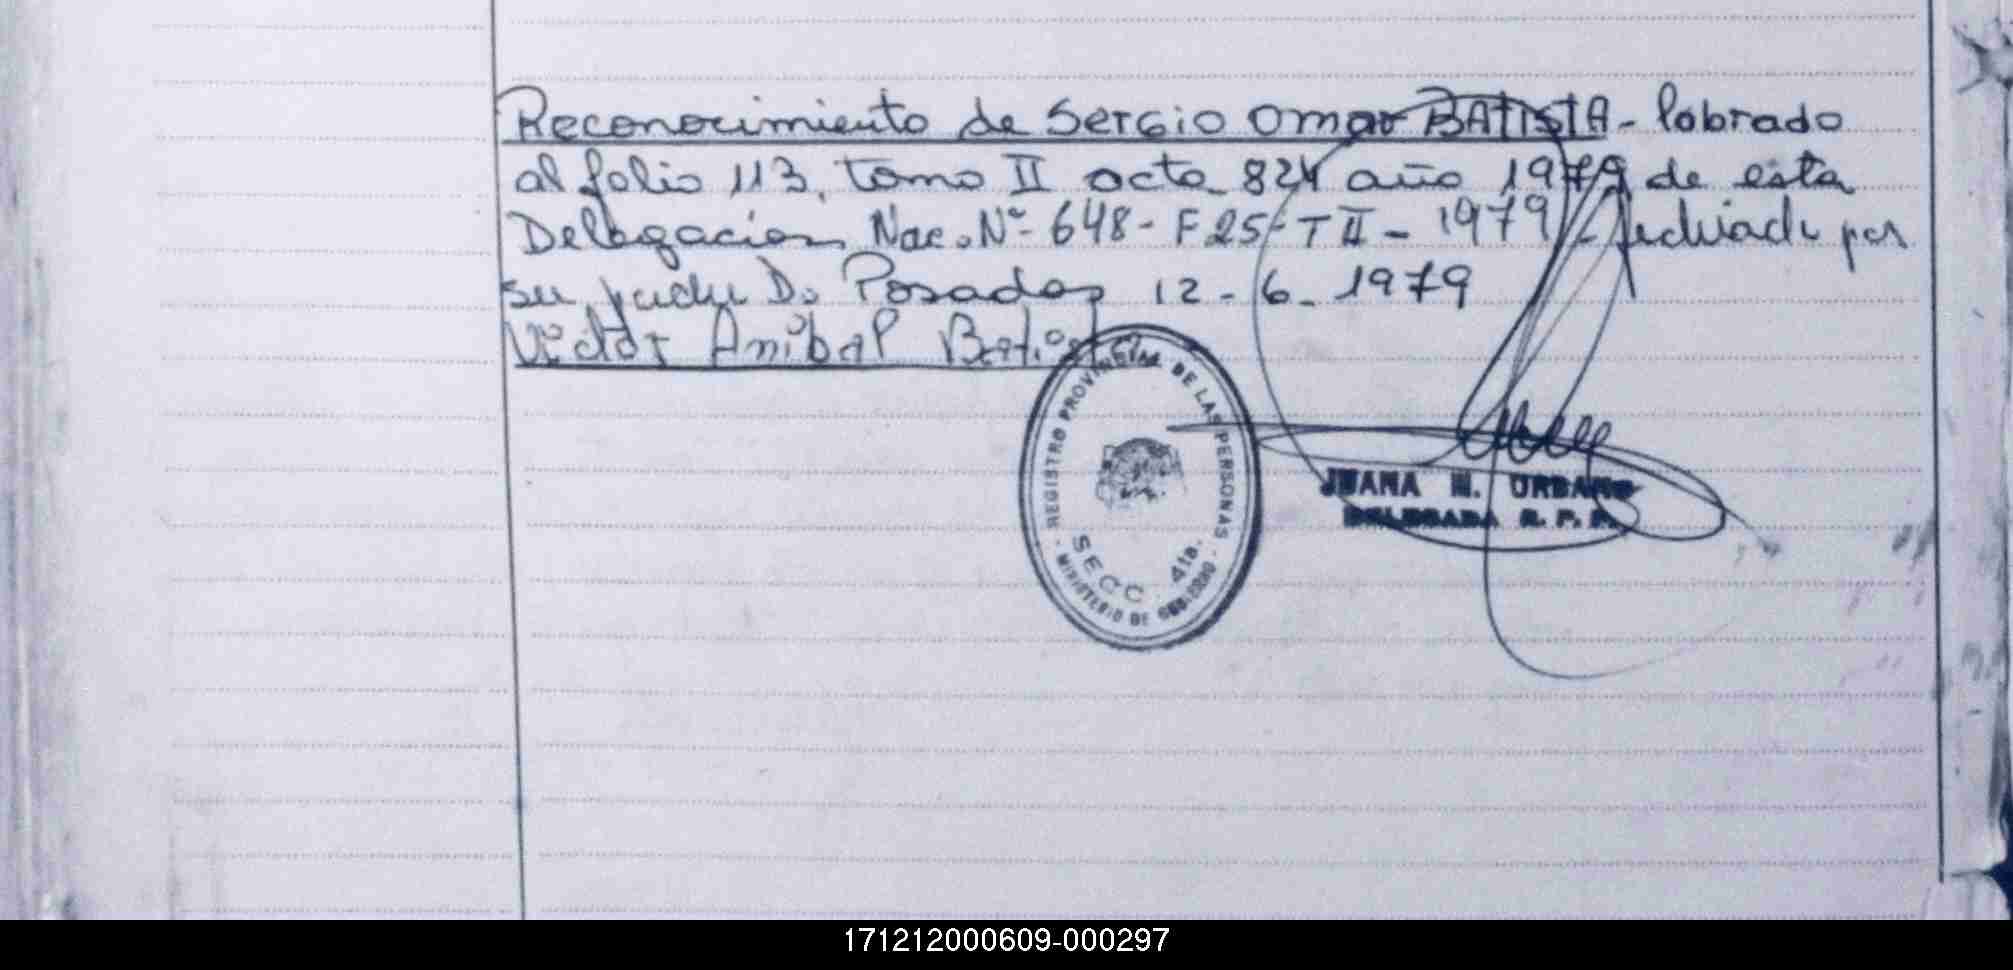 Reconocimiento de Sergio Omar BATISTA - labrado
al folio 113, tomo II acta 824 año 1979 de esta
Delegación Nac. Nº - 648 - F 25 - T II - 1979 - por
su padre D. Posadas 12 - 6 - 1979
Victor Anibal Batista
REGISTRO PROVINCIAL DE LAS PERSONAS
SECC. 4ta.
- MINISTERIO DE GOBIERNO -
JUANA M. URBANO
DELEGADA R. P. P.
171212000609-000297